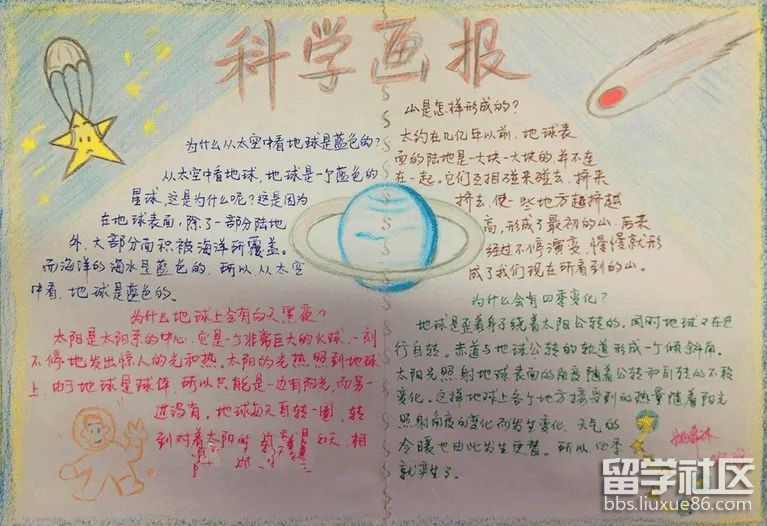 科学画报
为什么从太空中看地球是蓝色的?
从太空中看地球,地球是一个蓝色的
星球,这是为什么呢?这是因为
在地球表面,除了一部分陆地
外,大部分面积被海洋所覆盖。
而海洋的海水是蓝色的,所以,从太空
中看,地球是蓝色的。
为什么地球上会有白天黑夜?
太阳是太阳系的中心,它是一个非常巨大的火球,一刻
不停地发出惊人的光和热。太阳的光热照到地球
上,由于地球是球体,所以只能是一边有阳光,而另一
边没有。地球每天自转一圈,转
到对着太阳的 白天,相
山是怎样形成的?
大约在几亿年以前,地球表
面的陆地是一大块一大块的,并不连
在一起。它们互相碰来碰去,挤来
挤去,使一些地方越挤越
高,形成了最初的山,后来
经过不停演变,慢慢就形
成了我们现在所看到的山。
为什么会有四季变化?
地球是歪着身子绕着太阳公转的,同时地球又在进
行自转。赤道与地球公转的轨道形成一个倾斜角。
太阳光照射地球表面的角度随着公转和自转的不断
变化。这样地球上各个地方接受到的热量随着阳光
照射角度的变化而发生变化,天气的
冷暖也由此发生更替。所以四季
就产生了。
留学社区
bbs.liuxue86.com